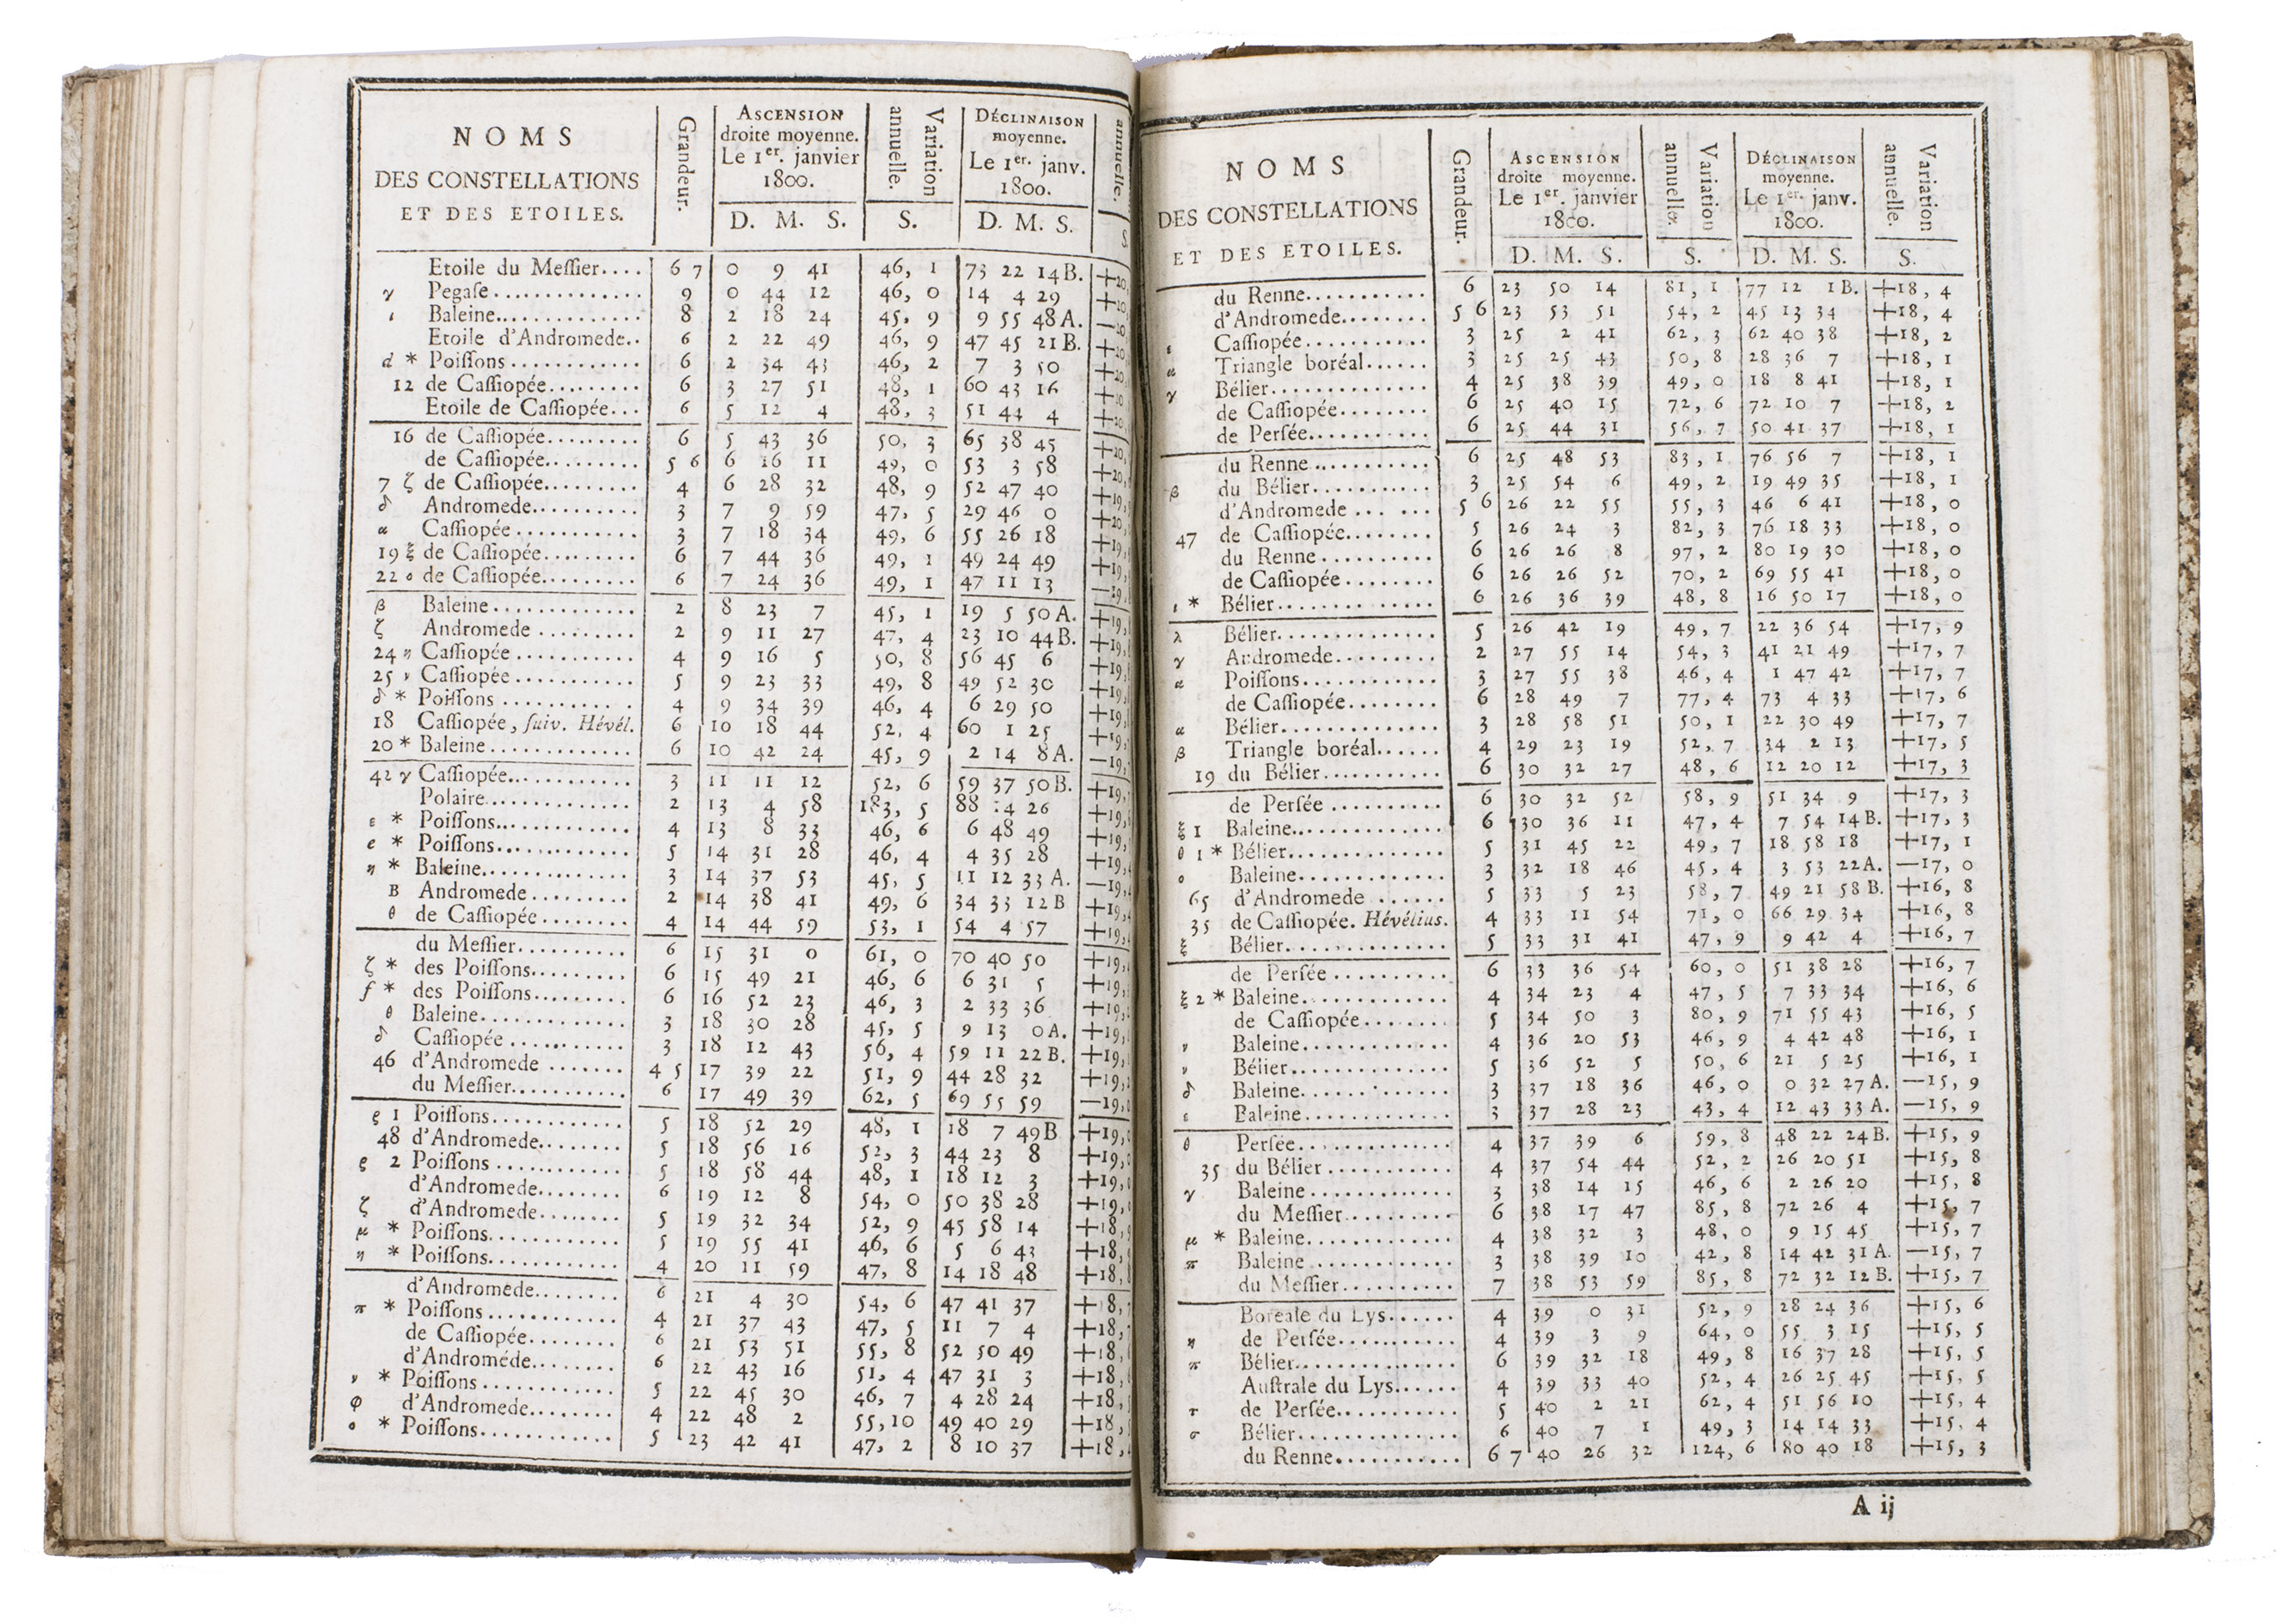 NOMS
DES CONSTELLATIONS
ET DES ETOILES.
Grandeur.
ASCENSION
droite moyenne.
Le 1er. janvier
1800.
D. M. S.
Variation
annuelle.
S.
DÉCLINAISON
moyenne.
Le 1er. janv.
1800.
D. M. S.
annuelle.
S.
Etoile du Meſſier.... 6 7 0 9 41 46, 1 73 22 14 B. +20,
γ Pegaſe............. 9 0 44 12 46, 0 14 4 29 +20,
ι Baleine.............. 8 2 18 24 45, 9 9 55 48 A. —20
Etoile d'Andromede.. 6 2 22 49 46, 9 47 45 21 B. +20,
d * Poiſſons............ 6 2 34 43 46, 2 7 3 50 +20,
12 de Caſſiopée......... 6 3 27 51 48, 1 60 43 16 +20
Etoile de Caſſiopée... 6 5 12 4 48, 3 51 44 4 +20,
16 de Caſſiopée......... 6 5 43 36 50, 3 65 38 45 +20,
de Caſſiopée......... 5 6 6 16 11 49, 0 53 3 58 +20,
7 ζ de Caſſiopée......... 4 6 28 32 48, 9 52 47 40 +19,
δ Andromede.......... 3 7 9 59 47, 5 29 46 0 +20,
α Caſſiopée........... 3 7 18 34 49, 6 55 26 18 +19,
19 ξ de Caſſiopée......... 6 7 44 36 49, 1 49 24 49 +19,
22 ο de Caſſiopée......... 6 7 24 36 49, 1 47 11 13 —19,
β Baleine............. 2 8 23 7 45, 1 19 5 50 A. +19,
ζ Andromede ......... 2 9 11 27 47, 4 23 10 44 B. +19,
24 η Caſſiopée........... 4 9 16 5 50, 8 56 45 6 +19,
25 ν Caſſiopée........... 5 9 23 33 49, 8 49 52 30 +19,
δ * Poiſſons .......... . 4 9 34 39 46, 4 6 29 50 +19,
18 Caſſiopée, ſuiv. Hévél. 6 10 18 44 52, 4 60 1 25 +19,
20 * Baleine............. 6 10 42 24 45, 9 2 14 8 A. —19,
42 γ Caſſiopée............ 3 11 11 12 52, 6 59 37 50 B. +19,
Polaire.............. 2 13 4 58 183, 5 88 14 26 +19,
ε * Poiſſons............. 4 13 8 33 46, 6 6 48 49 +19,
e * Poiſſons............. 5 14 31 28 46, 4 4 35 28 +19,
η * Baleine.............. 3 14 37 53 45, 5 11 12 33 A. —19,
B Andromede......... 2 14 38 41 49, 6 34 33 12 B +19,
θ de Caſſiopée........ 4 14 44 59 53, 1 54 4 57 +19,
du Meſſier.......... 6 15 31 0 61, 0 70 40 50 +19,
ζ * des Poiſſons......... 6 15 49 21 46, 6 6 31 5 +19,
f * des Poiſſons......... 6 16 52 23 46, 3 2 33 36 +19,
θ Baleine............. 3 18 30 28 45, 5 9 13 0 A. +19,
δ Caſſiopée........... 3 18 12 43 56, 4 59 11 22 B. +19,
46 d'Andromede ....... 4 5 17 39 22 51, 9 44 28 32 +19,
du Meſſier.......... 6 17 49 39 62, 5 69 55 59 —19,
ρ 1 Poiſſons............ 5 18 52 29 48, 1 18 7 49 B +19,
48 d'Andromede........ 5 18 56 16 52, 3 44 23 8 +19,
ρ 2 Poiſſons............ 5 18 58 44 48, 1 18 12 3 +19,
d'Andromede........ 6 19 12 8 54, 0 50 38 28 +19,
ζ d'Andromede........ 5 19 32 34 52, 9 45 58 14 +18,
μ * Poiſſons............ 5 19 55 41 46, 6 5 6 43 +18,
η * Poiſſons............ 4 20 11 59 47, 8 14 18 48 +18,
d'Andromede........ 6 21 4 30 54, 6 47 41 37 +18,
π * Poiſſons............ 4 21 37 43 47, 5 11 7 4 +18,
de Caſſiopée........ 6 21 53 51 55, 8 52 50 49 +18,
d'Androméde........ 6 22 43 16 51, 4 47 31 3 +18,
ν * Poiſſons............ 5 22 45 30 46, 7 4 28 24 +18,
φ d'Andromede........ 4 22 48 2 55, 10 49 40 29 +18,
ο * Poiſſons............ 5 23 42 41 47, 2 8 10 37 +18,
NOMS
DES CONSTELLATIONS
ET DES ETOILES.
Grandeur.
ASCENSION
droite moyenne.
Le 1er. janvier
1800.
D. M. S.
Variation
annuelle.
S.
DÉCLINAISON
moyenne.
Le 1er. janv.
1800.
D. M. S.
Variation
annuelle.
S.
du Renne........... 6 23 50 14 81, 1 77 12 1 B. +18, 4
d'Andromede........ 5 6 23 53 51 54, 2 45 13 34 +18, 4
ε Caſſiopée........... 3 25 2 41 62, 3 62 40 38 +18, 2
α Triangle boréal...... 3 25 25 43 50, 8 28 36 7 +18, 1
γ Bélier.............. 4 25 38 39 49, 0 18 8 41 +18, 1
de Caſſiopée........ 6 25 40 15 72, 6 72 10 7 +18, 2
de Perſée........... 6 25 44 31 56, 7 50 41 37 +18, 1
du Renne........... 6 25 48 53 83, 1 76 56 7 +18, 1
β du Bélier........... 3 25 54 6 49, 2 19 49 35 +18, 1
d'Andromede ... ... 5 6 26 22 55 55, 3 46 6 41 +18, 0
47 de Caſſiopée........ 5 26 24 3 82, 3 76 18 33 +18, 0
du Renne .......... 6 26 26 8 97, 2 80 19 30 +18, 0
de Caſſiopée........ 6 26 26 52 70, 2 69 55 41 +18, 0
ι * Bélier.............. 6 26 36 39 48, 8 16 50 17 +18, 0
λ Bélier.............. 5 26 42 19 49, 7 22 36 54 +17, 9
γ Andromede......... 2 27 55 14 54, 3 41 21 49 +17, 7
α Poiſſons............ 3 27 55 38 46, 4 1 47 42 +17, 7
de Caſſiopée........ 6 28 49 7 77, 4 73 4 33 +17, 6
α Bélier.............. 3 28 58 51 50, 1 22 30 49 +17, 7
β Triangle boréal...... 4 29 23 19 52, 7 34 2 13 +17, 5
19 du Bélier........... 6 30 32 27 48, 6 12 20 12 +17, 3
de Perſée .......... 6 30 32 52 58, 9 51 34 9 +17, 3
ξ 1 Baleine............. 6 30 36 11 47, 4 7 54 14 B. +17, 3
θ 1 * Bélier.............. 5 31 45 22 49, 7 18 58 18 +17, 1
ο Baleine............. 3 32 18 46 45, 4 3 53 22 A. —17, 0
65 d'Andromede ...... 5 33 5 23 58, 7 49 21 58 B. +16, 8
35 de Caſſiopée. Hévélius. 4 33 11 54 71, 0 66 29 34 +16, 8
ξ Bélier.............. 5 33 31 41 47, 9 9 42 4 +16, 7
de Perſée .......... 6 33 36 54 60, 0 51 38 28 +16, 7
ξ 2 * Baleine............. 4 34 23 4 47, 5 7 33 34 +16, 6
de Caſſiopée........ 5 34 50 3 80, 9 71 55 43 +16, 5
ν Baleine............. 4 36 20 53 46, 9 4 42 48 +16, 1
ν Bélier.............. 5 36 52 5 50, 6 21 5 25 +16, 1
δ Baleine............. 3 37 18 36 46, 0 0 32 27 A. —15, 9
ε Baleine............. 3 37 28 23 43, 4 12 43 33 A. —15, 9
θ Perſée.............. 4 37 39 6 59, 8 48 22 24 B. +15, 9
35 du Bélier........... 4 37 54 44 52, 2 26 20 51 +15, 8
γ Baleine............. 3 38 14 15 46, 6 2 26 20 +15, 8
du Meſſier.......... 6 38 17 47 85, 8 72 26 4 +15, 7
μ * Baleine............. 4 38 32 3 48, 0 9 15 45 +15, 7
π Baleine............. 3 38 39 10 42, 8 14 42 31 A. —15, 7
du Meſſier.......... 7 38 53 59 85, 8 72 32 12 B. +15, 7
Boreale du Lys...... 4 39 0 31 52, 9 28 24 36 +15, 6
η de Perſée........... 4 39 3 9 64, 0 55 3 15 +15, 5
π Bélier.............. 6 39 32 18 49, 8 16 37 28 +15, 5
Auſtrale du Lys...... 4 39 33 40 52, 4 26 25 45 +15, 5
τ de Perſée........... 5 40 2 21 62, 4 51 56 10 +15, 4
σ Bélier.............. 6 40 7 1 49, 3 14 14 33 +15, 4
du Renne........... 6 7 40 26 32 124, 6 80 40 18 +15, 3
A ij